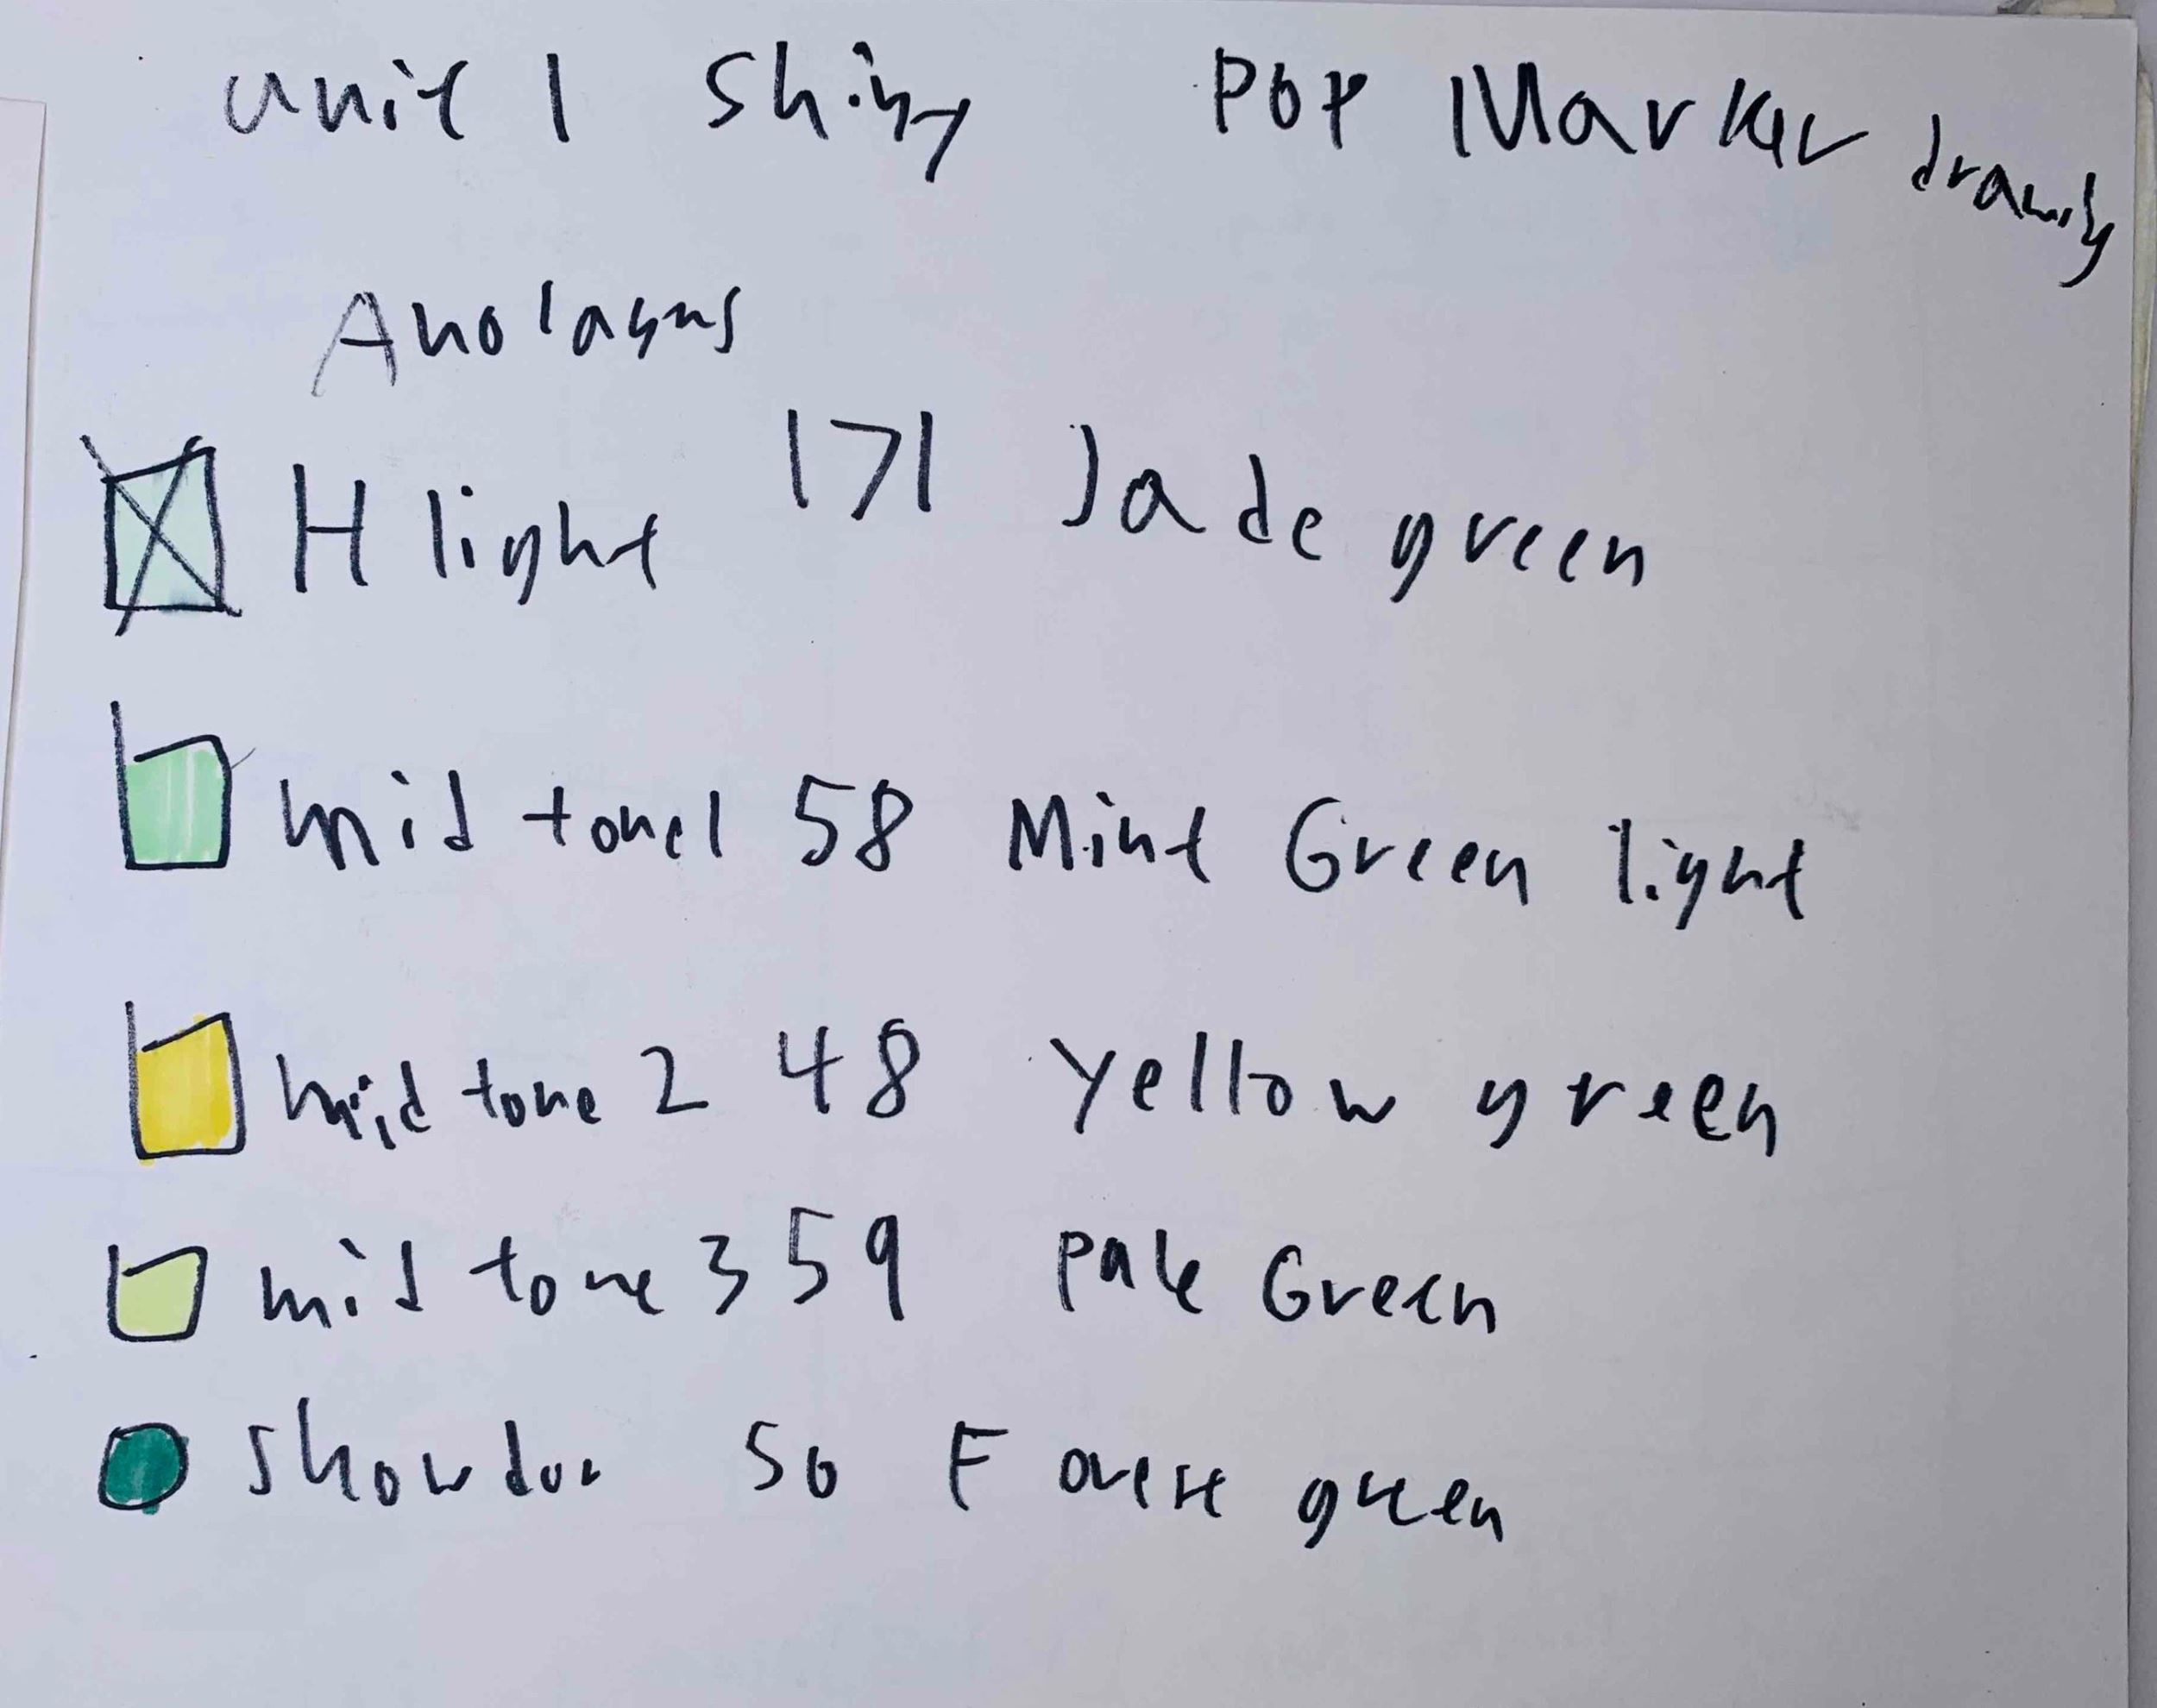 unit 1 Shiny Pop Marker drawing
Anolagus
H light 171 Jade green
mid tone 1 58 Mint Green light
mid tone 2 48 Yellow green
mid tone 3 59 Pale Green
Showdow 50 Forest green